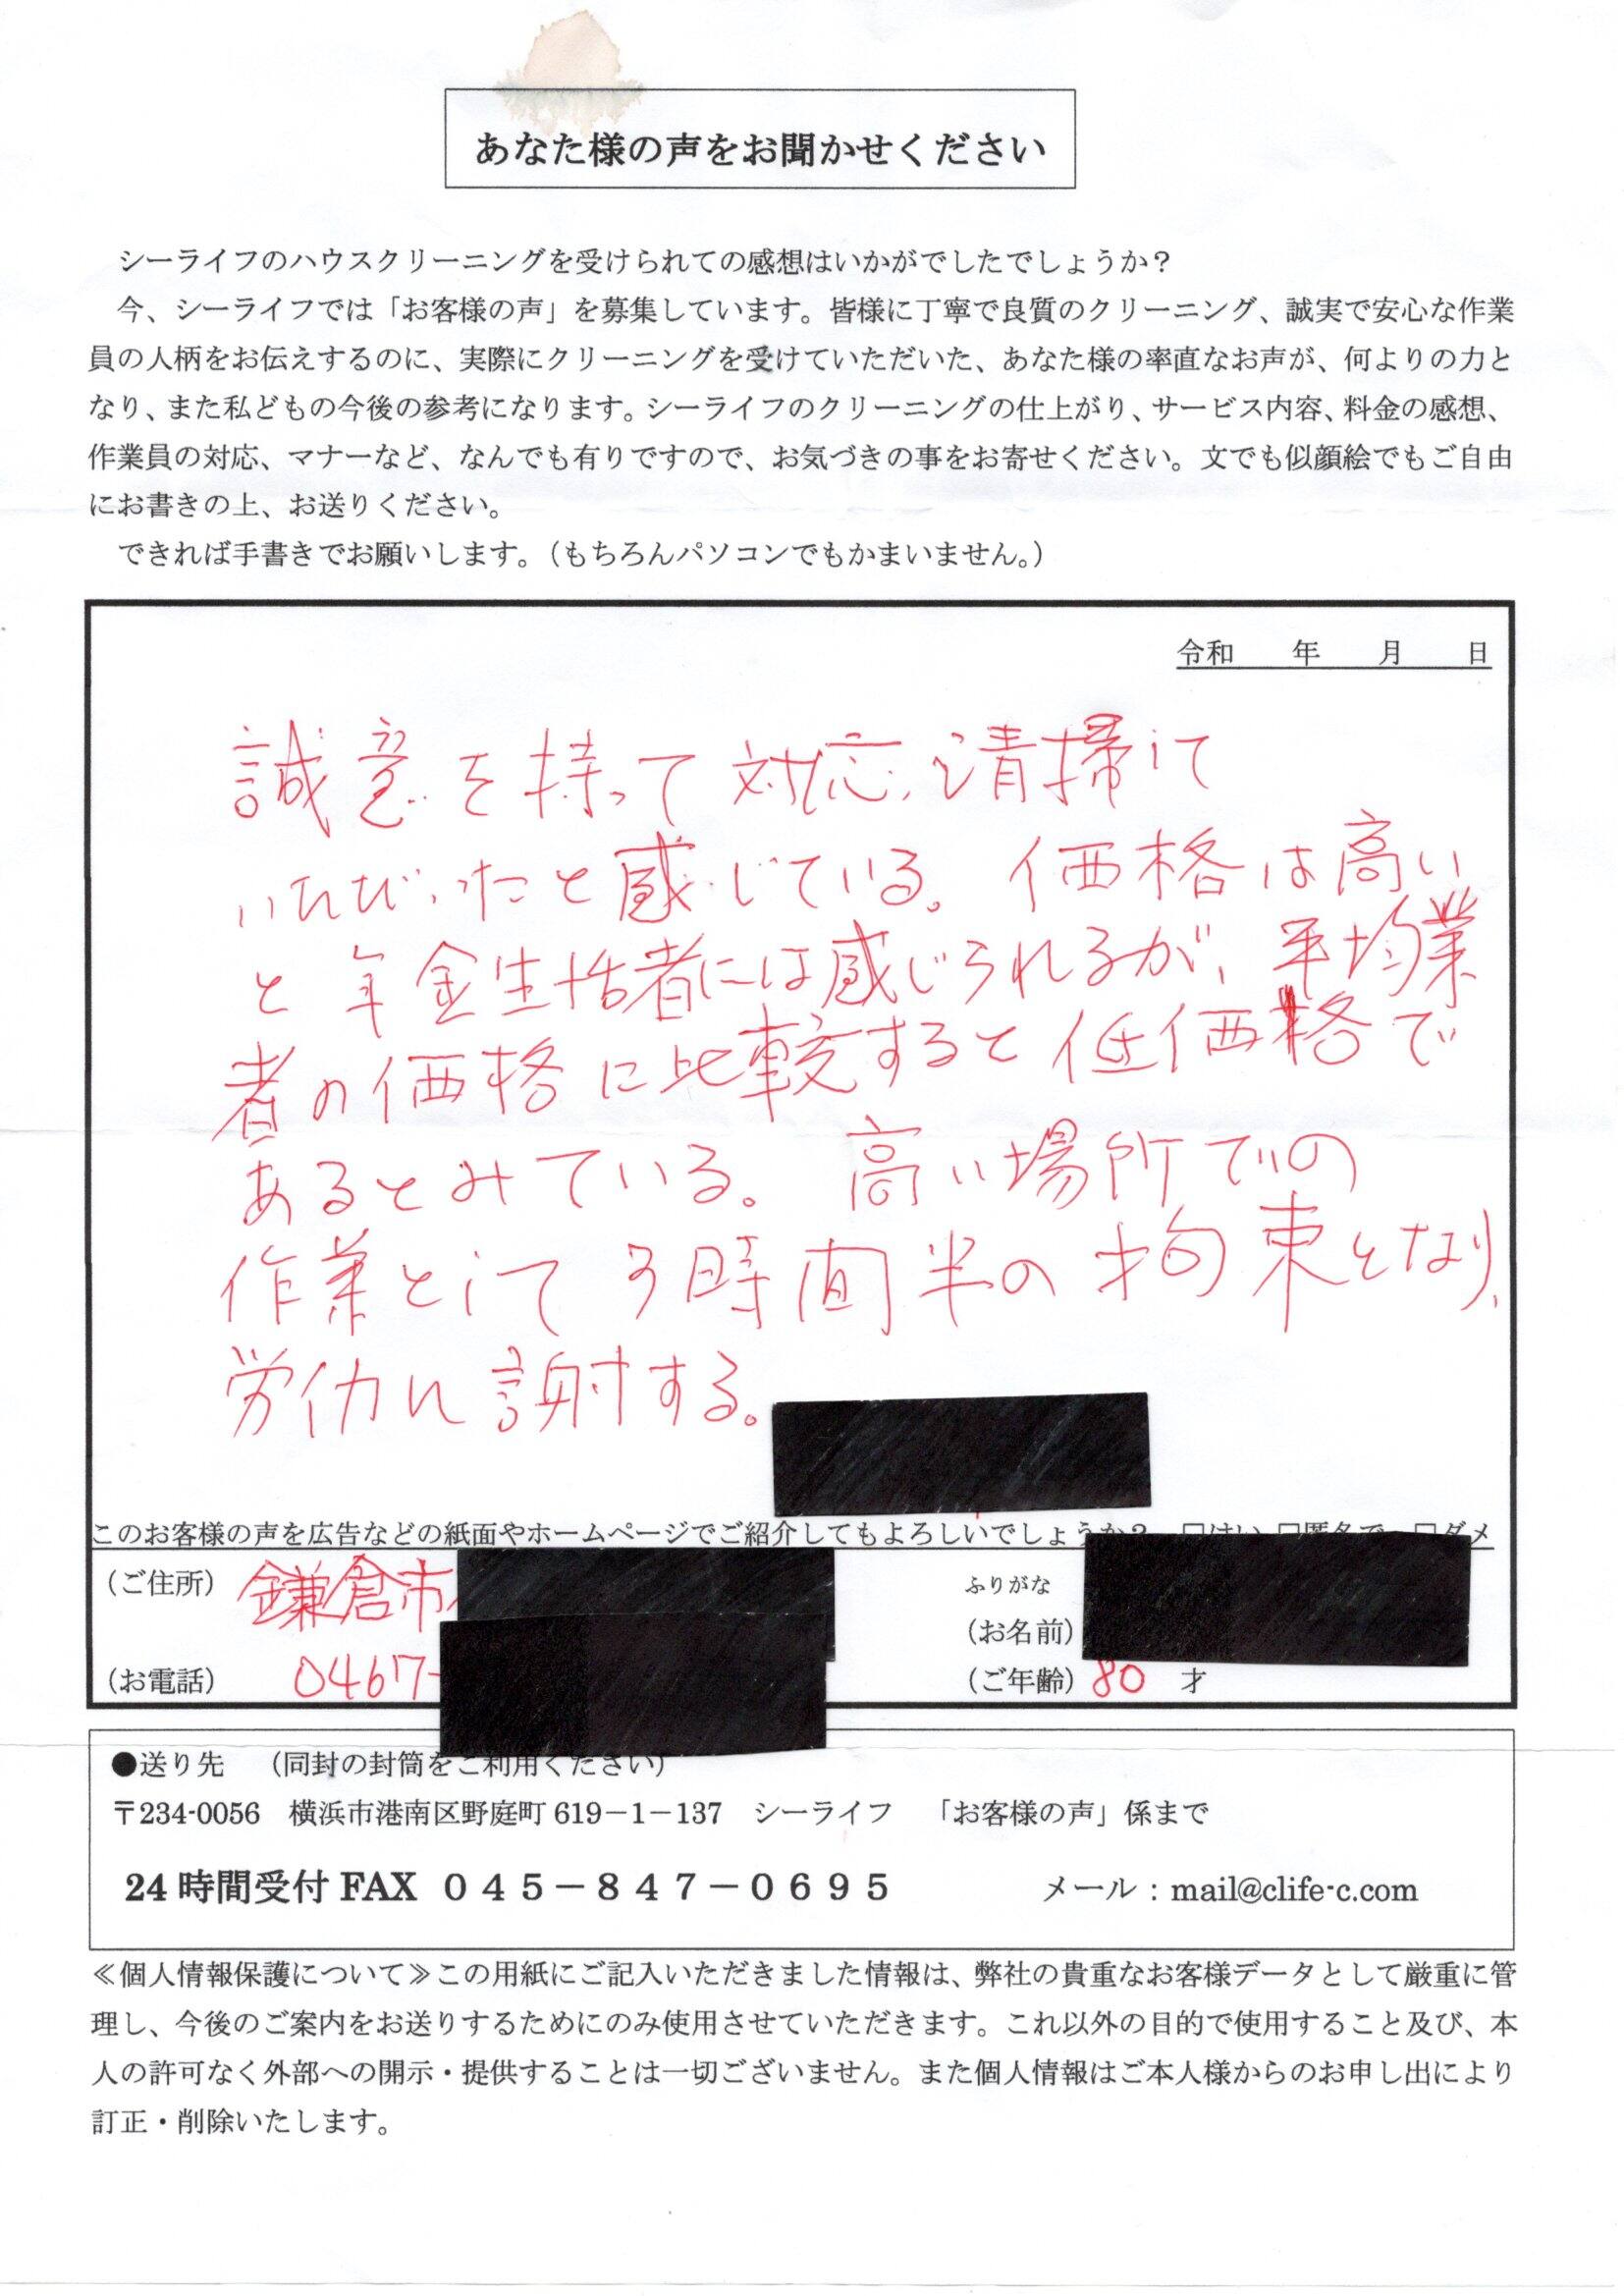 あなた様の声をお聞かせください
シーライフのハウスクリーニングを受けられての感想はいかがでしたでしょうか？
今、シーライフでは「お客様の声」を募集しています。皆様に丁寧で良質のクリーニング、誠実で安心な作業
員の人柄をお伝えするのに、実際にクリーニングを受けていただいた、あなた様の率直なお声が、何よりの力と
なり、また私どもの今後の参考になります。シーライフのクリーニングの仕上がり、サービス内容、料金の感想、
作業員の対応、マナーなど、なんでも有りですので、お気づきの事をお寄せください。文でも似顔絵でもご自由
にお書きの上、お送りください。
できれば手書きでお願いします。（もちろんパソコンでもかまいません。）
令和　　年　　月　　日
誠意を持って対応、清掃して
いただいたと感じている。価格は高い
と年金生活者には感じられるが、平均業
者の価格に比較すると低価格で
あるとみている。高い場所での
作業として3時間半の拘束となり、
労働に謝する。
このお客様の声を広告などの紙面やホームページでご紹介してもよろしいでしょうか？　□はい □匿名で □ダメ
（ご住所）鎌倉市
ふりがな
（お名前）
（お電話）0467-
（ご年齢）80 才
●送り先　（同封の封筒をご利用ください）
〒234-0056　横浜市港南区野庭町 619－1－137　シーライフ　「お客様の声」係まで
24 時間受付 FAX　０４５－８４７－０６９５　メール：mail@clife-c.com
≪個人情報保護について≫この用紙にご記入いただきました情報は、弊社の貴重なお客様データとして厳重に管
理し、今後のご案内をお送りするためにのみ使用させていただきます。これ以外の目的で使用すること及び、本
人の許可なく外部への開示・提供することは一切ございません。また個人情報はご本人様からのお申し出により
訂正・削除いたします。